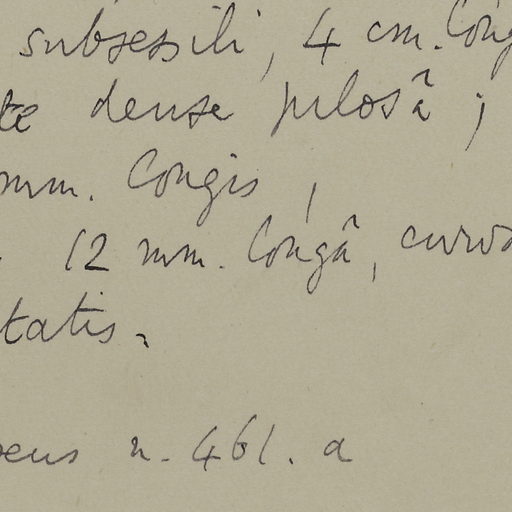 subsessili, 4 cm. long
te dense pilosâ ;
mm. longis ,
12 mm. longâ, curva
tatis.
eus n. 461. a